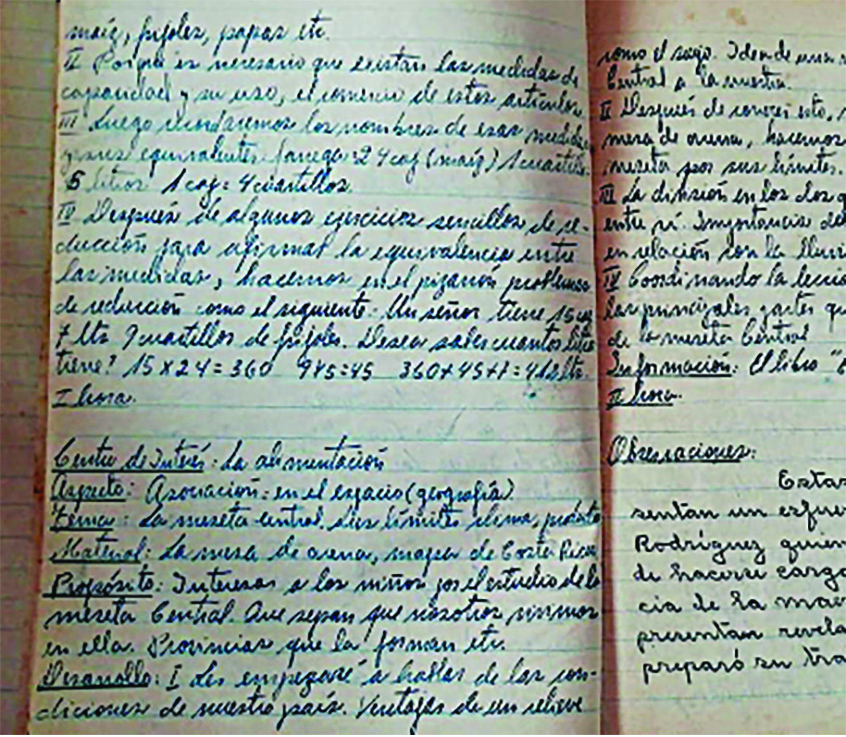 maíz, frijoles, papas etc.
II Porque es necesario que existan las medidas de
capacidad y su uso, el comercio de estos artículos.
III Luego recordaremos los nombres de esas medidas
y sus equivalentes. fanega: 24 caj (maíz) 1 cuartillo
5 litros 1 caj: 4 cuartillos.
IV Después de algunos ejercicios sencillos de re-
ducción para afirmar la equivalencia entre
las medidas, hacemos en el pizarrón problemas
de reducción como el siguiente: Un señor tiene 15 caj
7 lts 9 cuartillos de frijoles. Desea saber cuantos litros
tiene? 15 x 24 = 360 9x5=45 360+45+7=412 lts.
I hora.
Centro de Interés: La alimentación
Aspecto: Asociación: en el espacio (geografía)
Tema: La meseta central. Sus límites clima,
Material: La mesa de arena, mapa de Costa Rica
Propósito: Interesar a los niños por el estudio de la
meseta Central. Que sepan que nosotros vivimos
en ella. Provincias que la forman etc.
Desarrollo: I Les empezaré a hablar de las con-
diciones de nuestro país. Ventajas de un relieve
como el suyo. Idea de una
Central a la nuestra.
II Después de conocer esto,
mesa de arena, hacemos
meseta por sus límites.
III La división en los dos
entre sí. Importancia de
en relación con la lluvi
IV Coordinando la lecció
las principales partes qu
de la meseta Central
Información: El libro "
II hora.
Observaciones:
Estas
sentan un esfuer
Rodríguez quien
de hacerse cargo
cia de la mae
presentan revela
preparó su tra